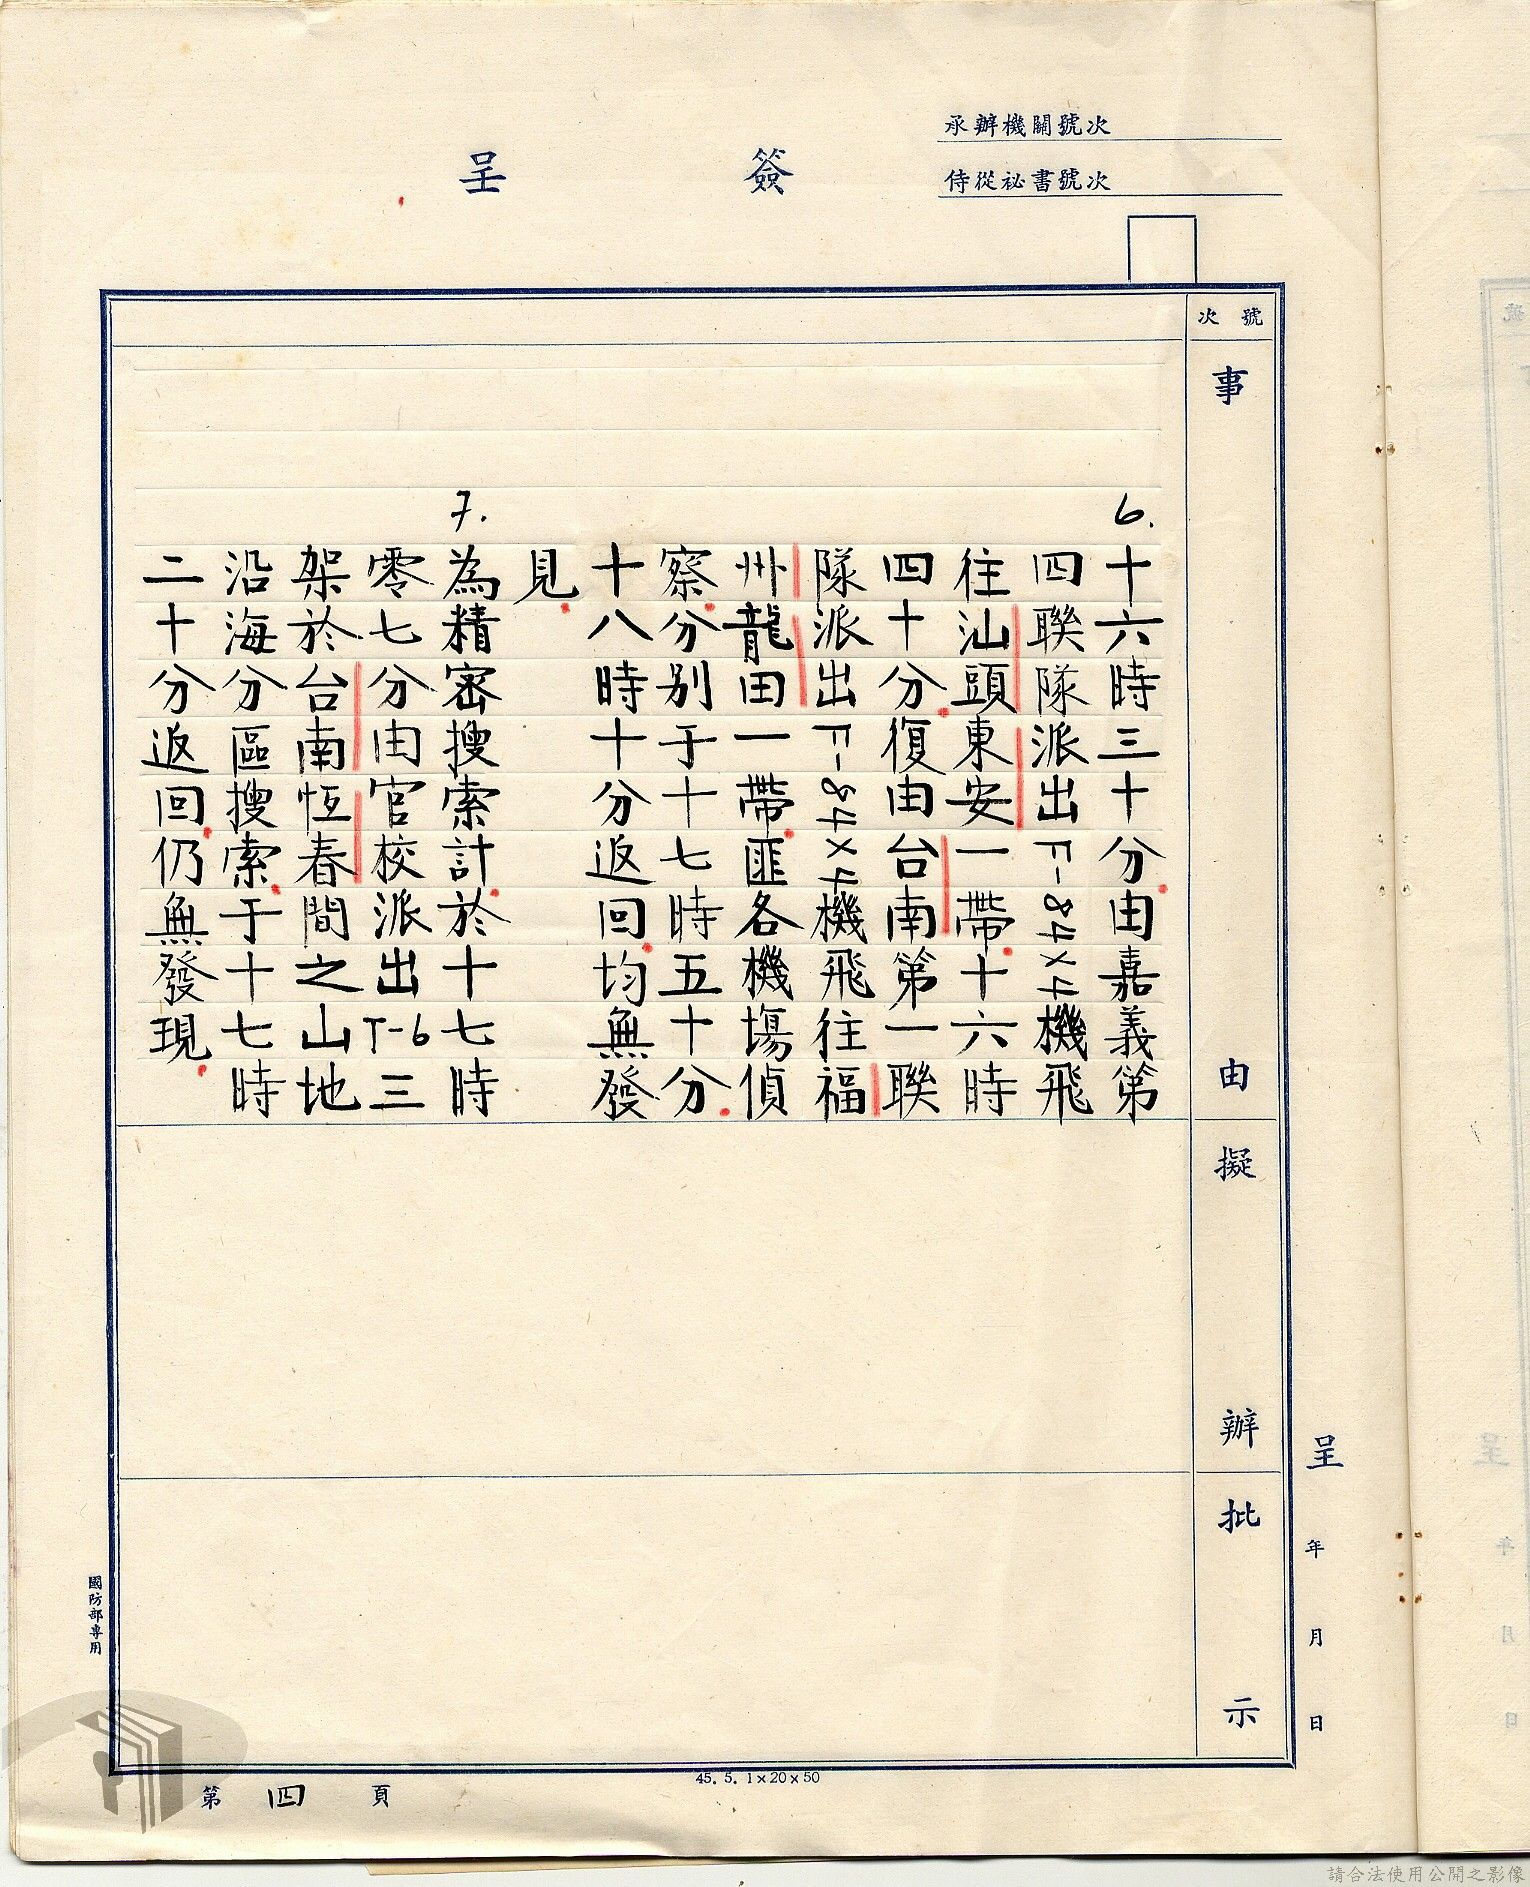 簽呈
承辦機關號次
侍從祕書號次
號次
事由
6.
十六時三十分由嘉義第
四聯隊派出F-84×4機飛
往汕頭東安一帶十六時
四十分復由台南第一聯
隊派出F-84×4機飛往福
州龍田一帶匪各機場偵
察分別于十七時五十分
十八時十分返回均無發
見
7.
為精密搜索計於十七時
零七分由官校派出T-6三
架於台南恆春間之山地
沿海分區搜索于十七時
二十分返回仍無發現
擬辦
批示
呈 年 月 日
國防部專用
45. 5. 1×20×50
第四頁
請合法使用公開之影像